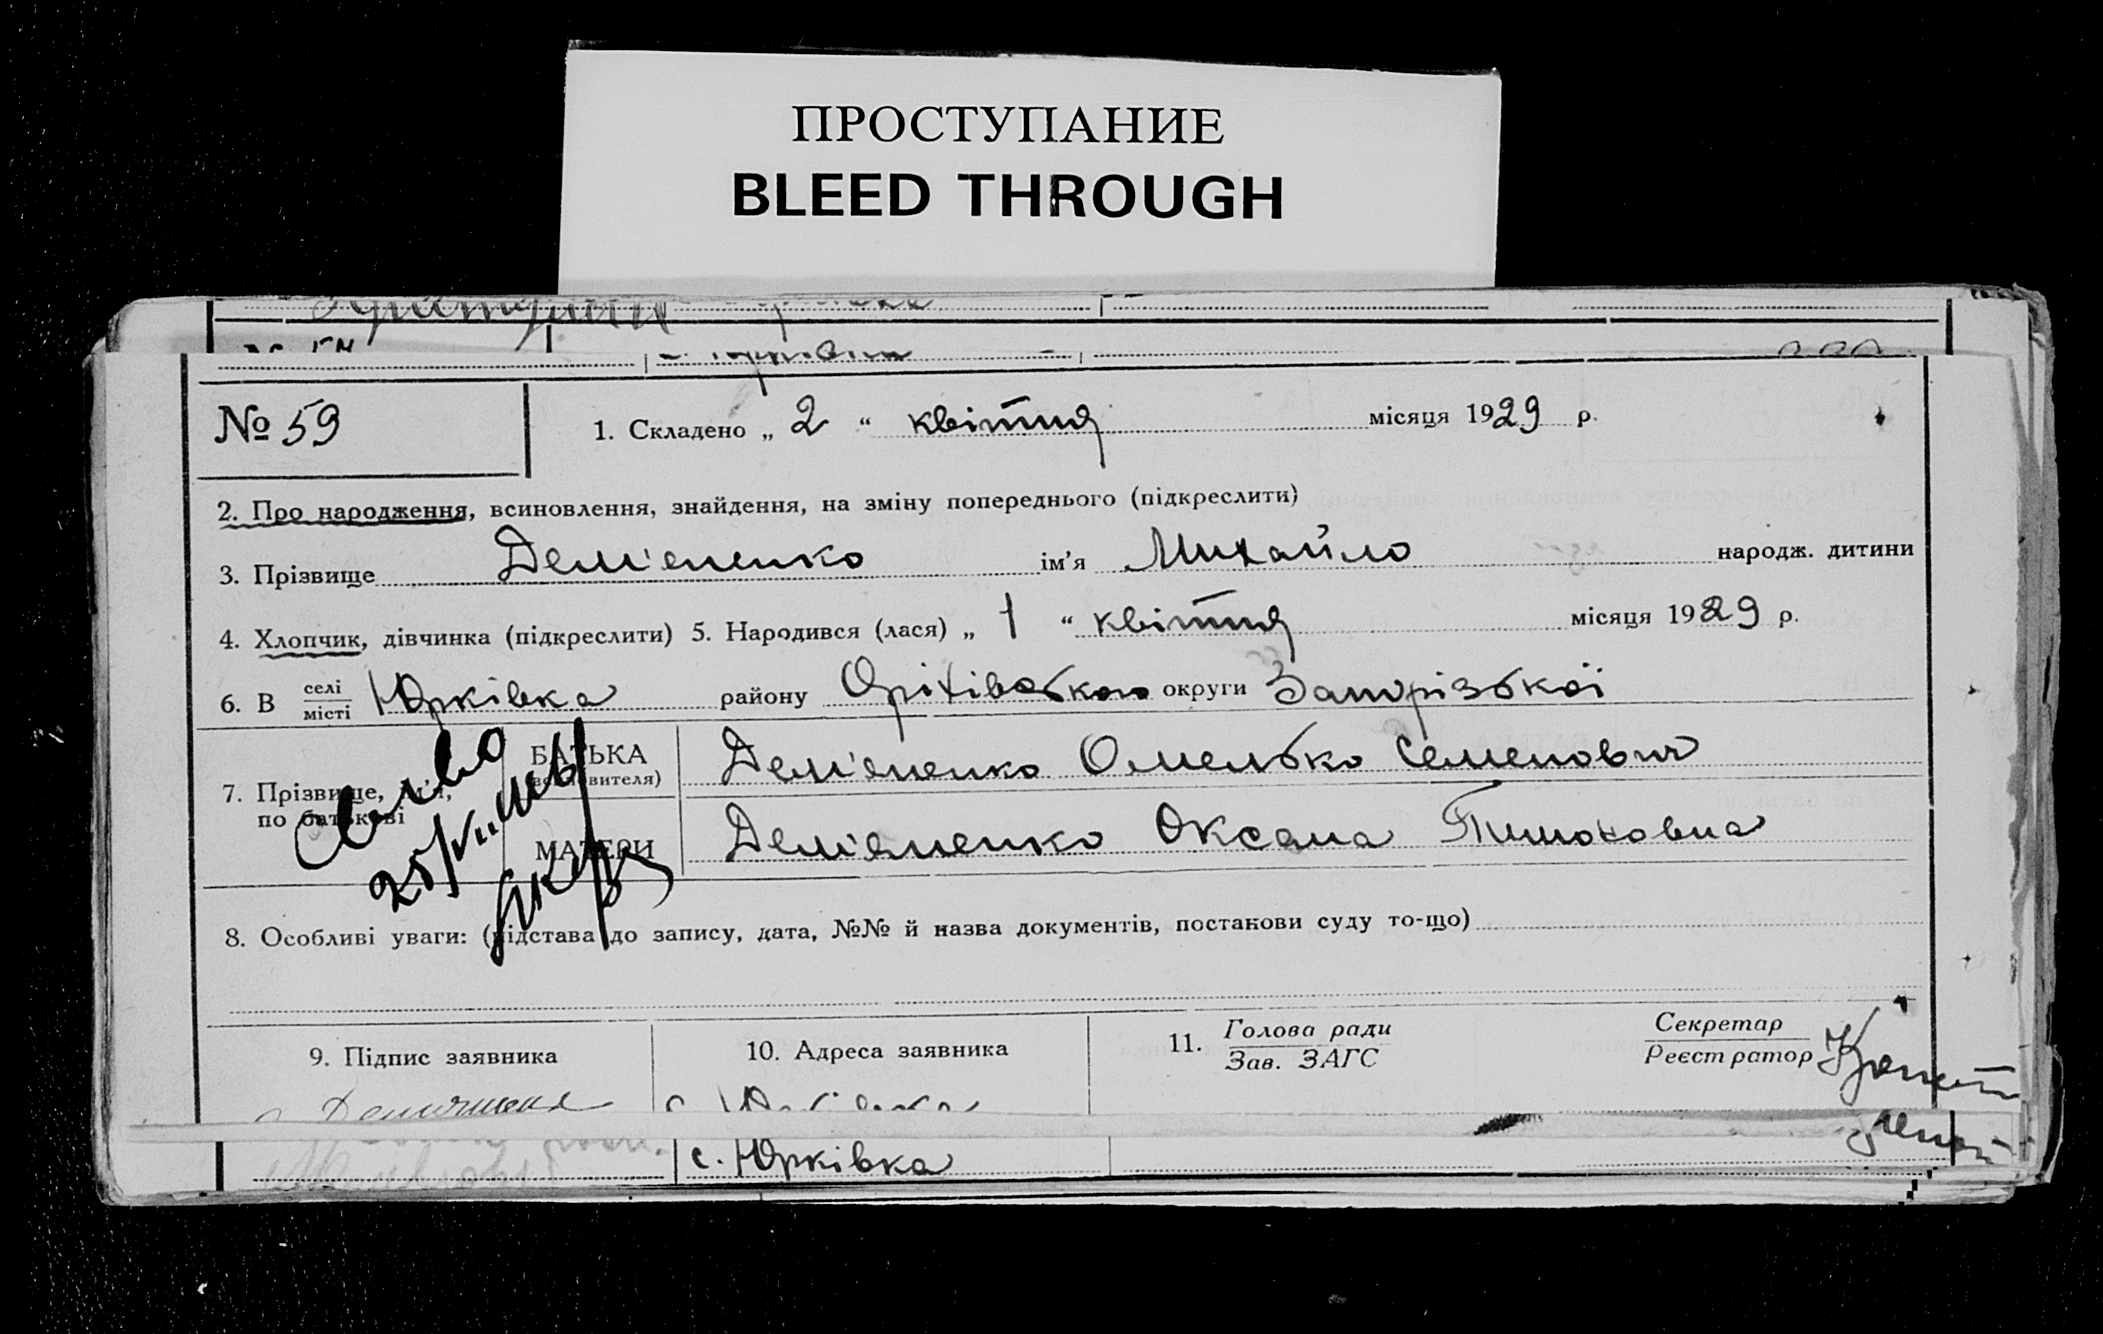 ПРОСТУПАНИЕ
BLEED THROUGH
№ 59
1. Складено „ 2 “ квітня місяця 1929 р.
2. Про народження, всиновлення, знайдення, на зміну попереднього (підкреслити)
3. Прізвище Дем'яненко ім’я Михайло народж. дитини
4. Хлопчик, дівчинка (підкреслити) 5. Народився (лася) „ 1 “ квітня місяця 1929 р.
6. В селі місті Юрківка району Оріхівського округи Запорізької
7. Прізвище, ім’я, по батькові
БАТЬКА
(всиновителя)
Дем'яненко Омелько Семенович
МАТЕРИ
Дем'яненко Оксана Тимоховна
8. Особливі уваги: (підстава до запису, дата, №№ й назва документів, постанови суду то-що)
9. Підпис заявника
10. Адреса заявника
11. Голова ради
Зав. ЗАГС
Секретар
Реєстратор
с. Юрківка